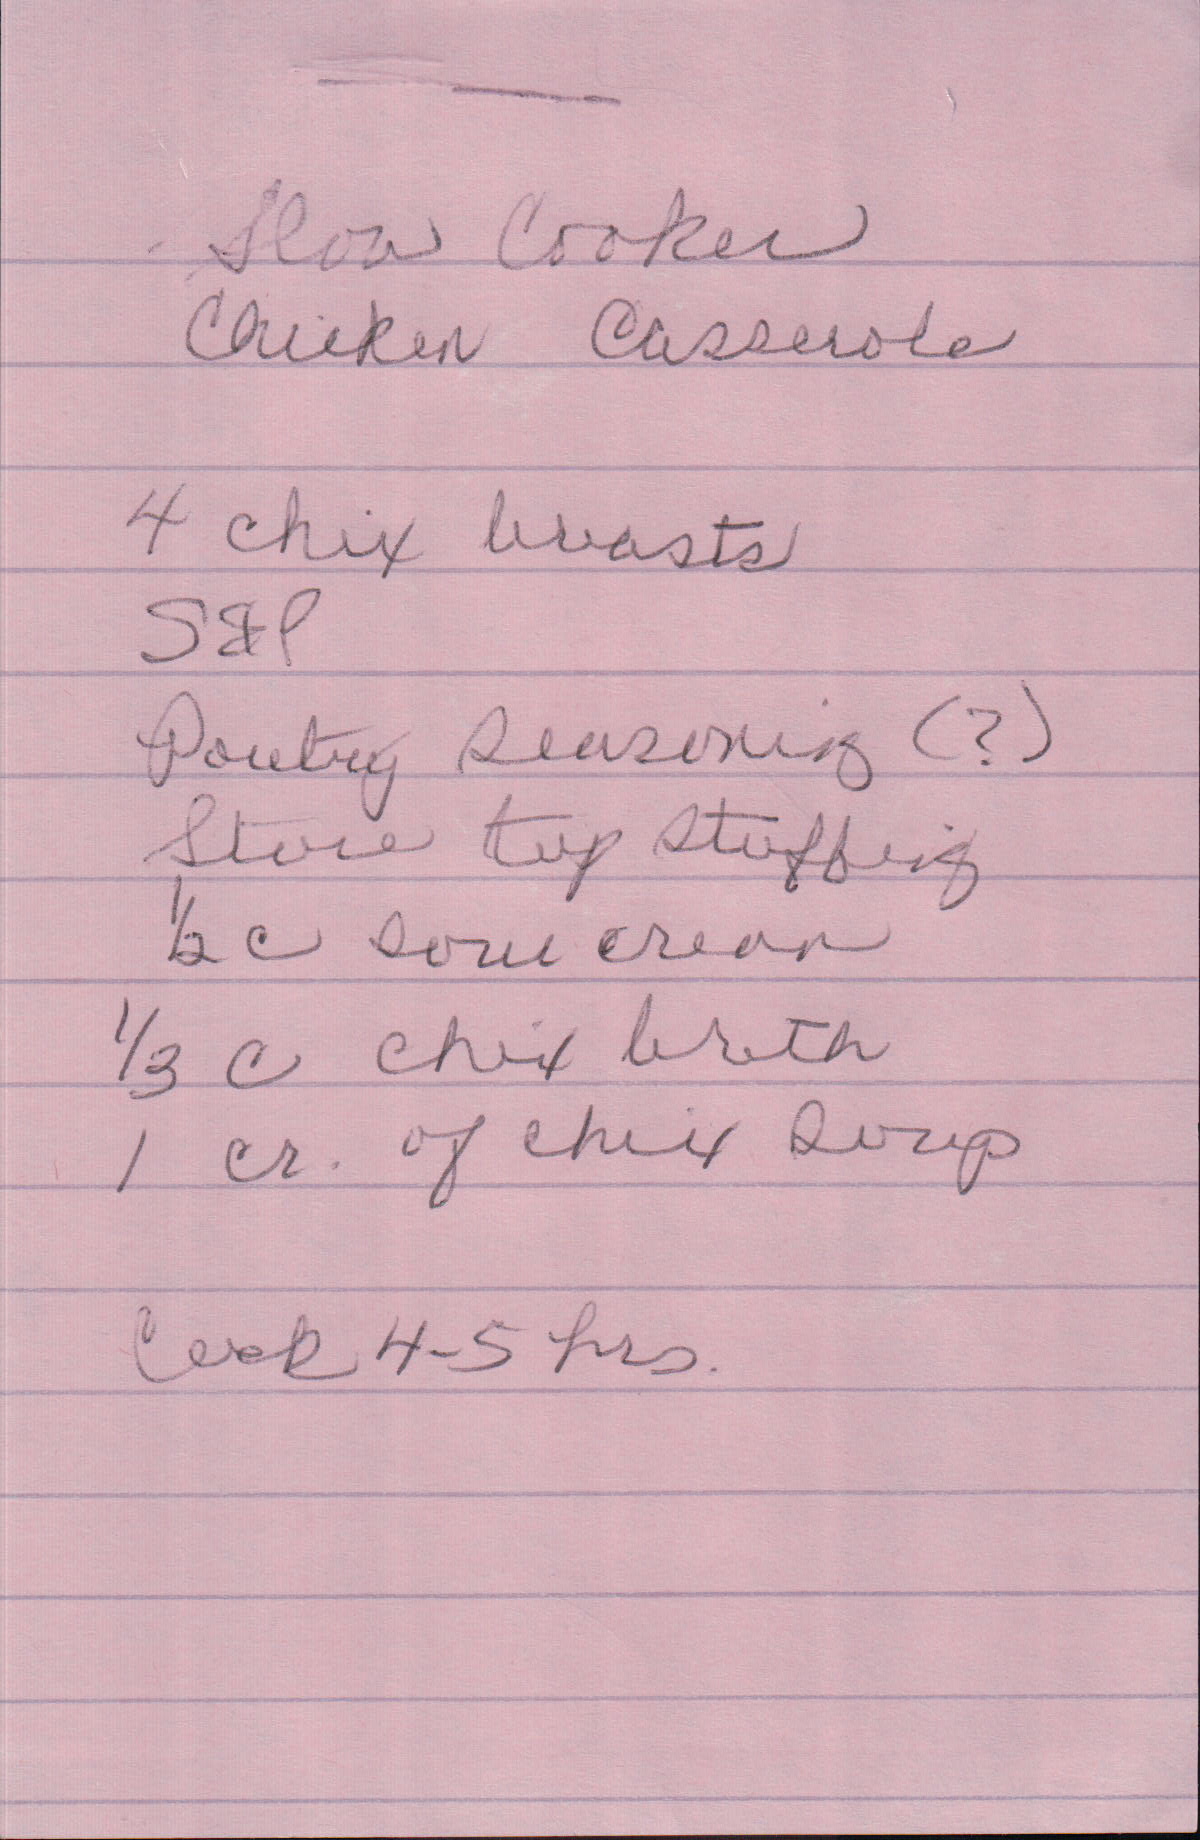 Slow Cooker
Chicken Casserole
4 chix breasts
S&P
Poultry Seasoning (?)
Stove top stuffing
1/2 c sour cream
1/3 c chix broth
1 cr. of chix soup
Cook 4-5 hrs.